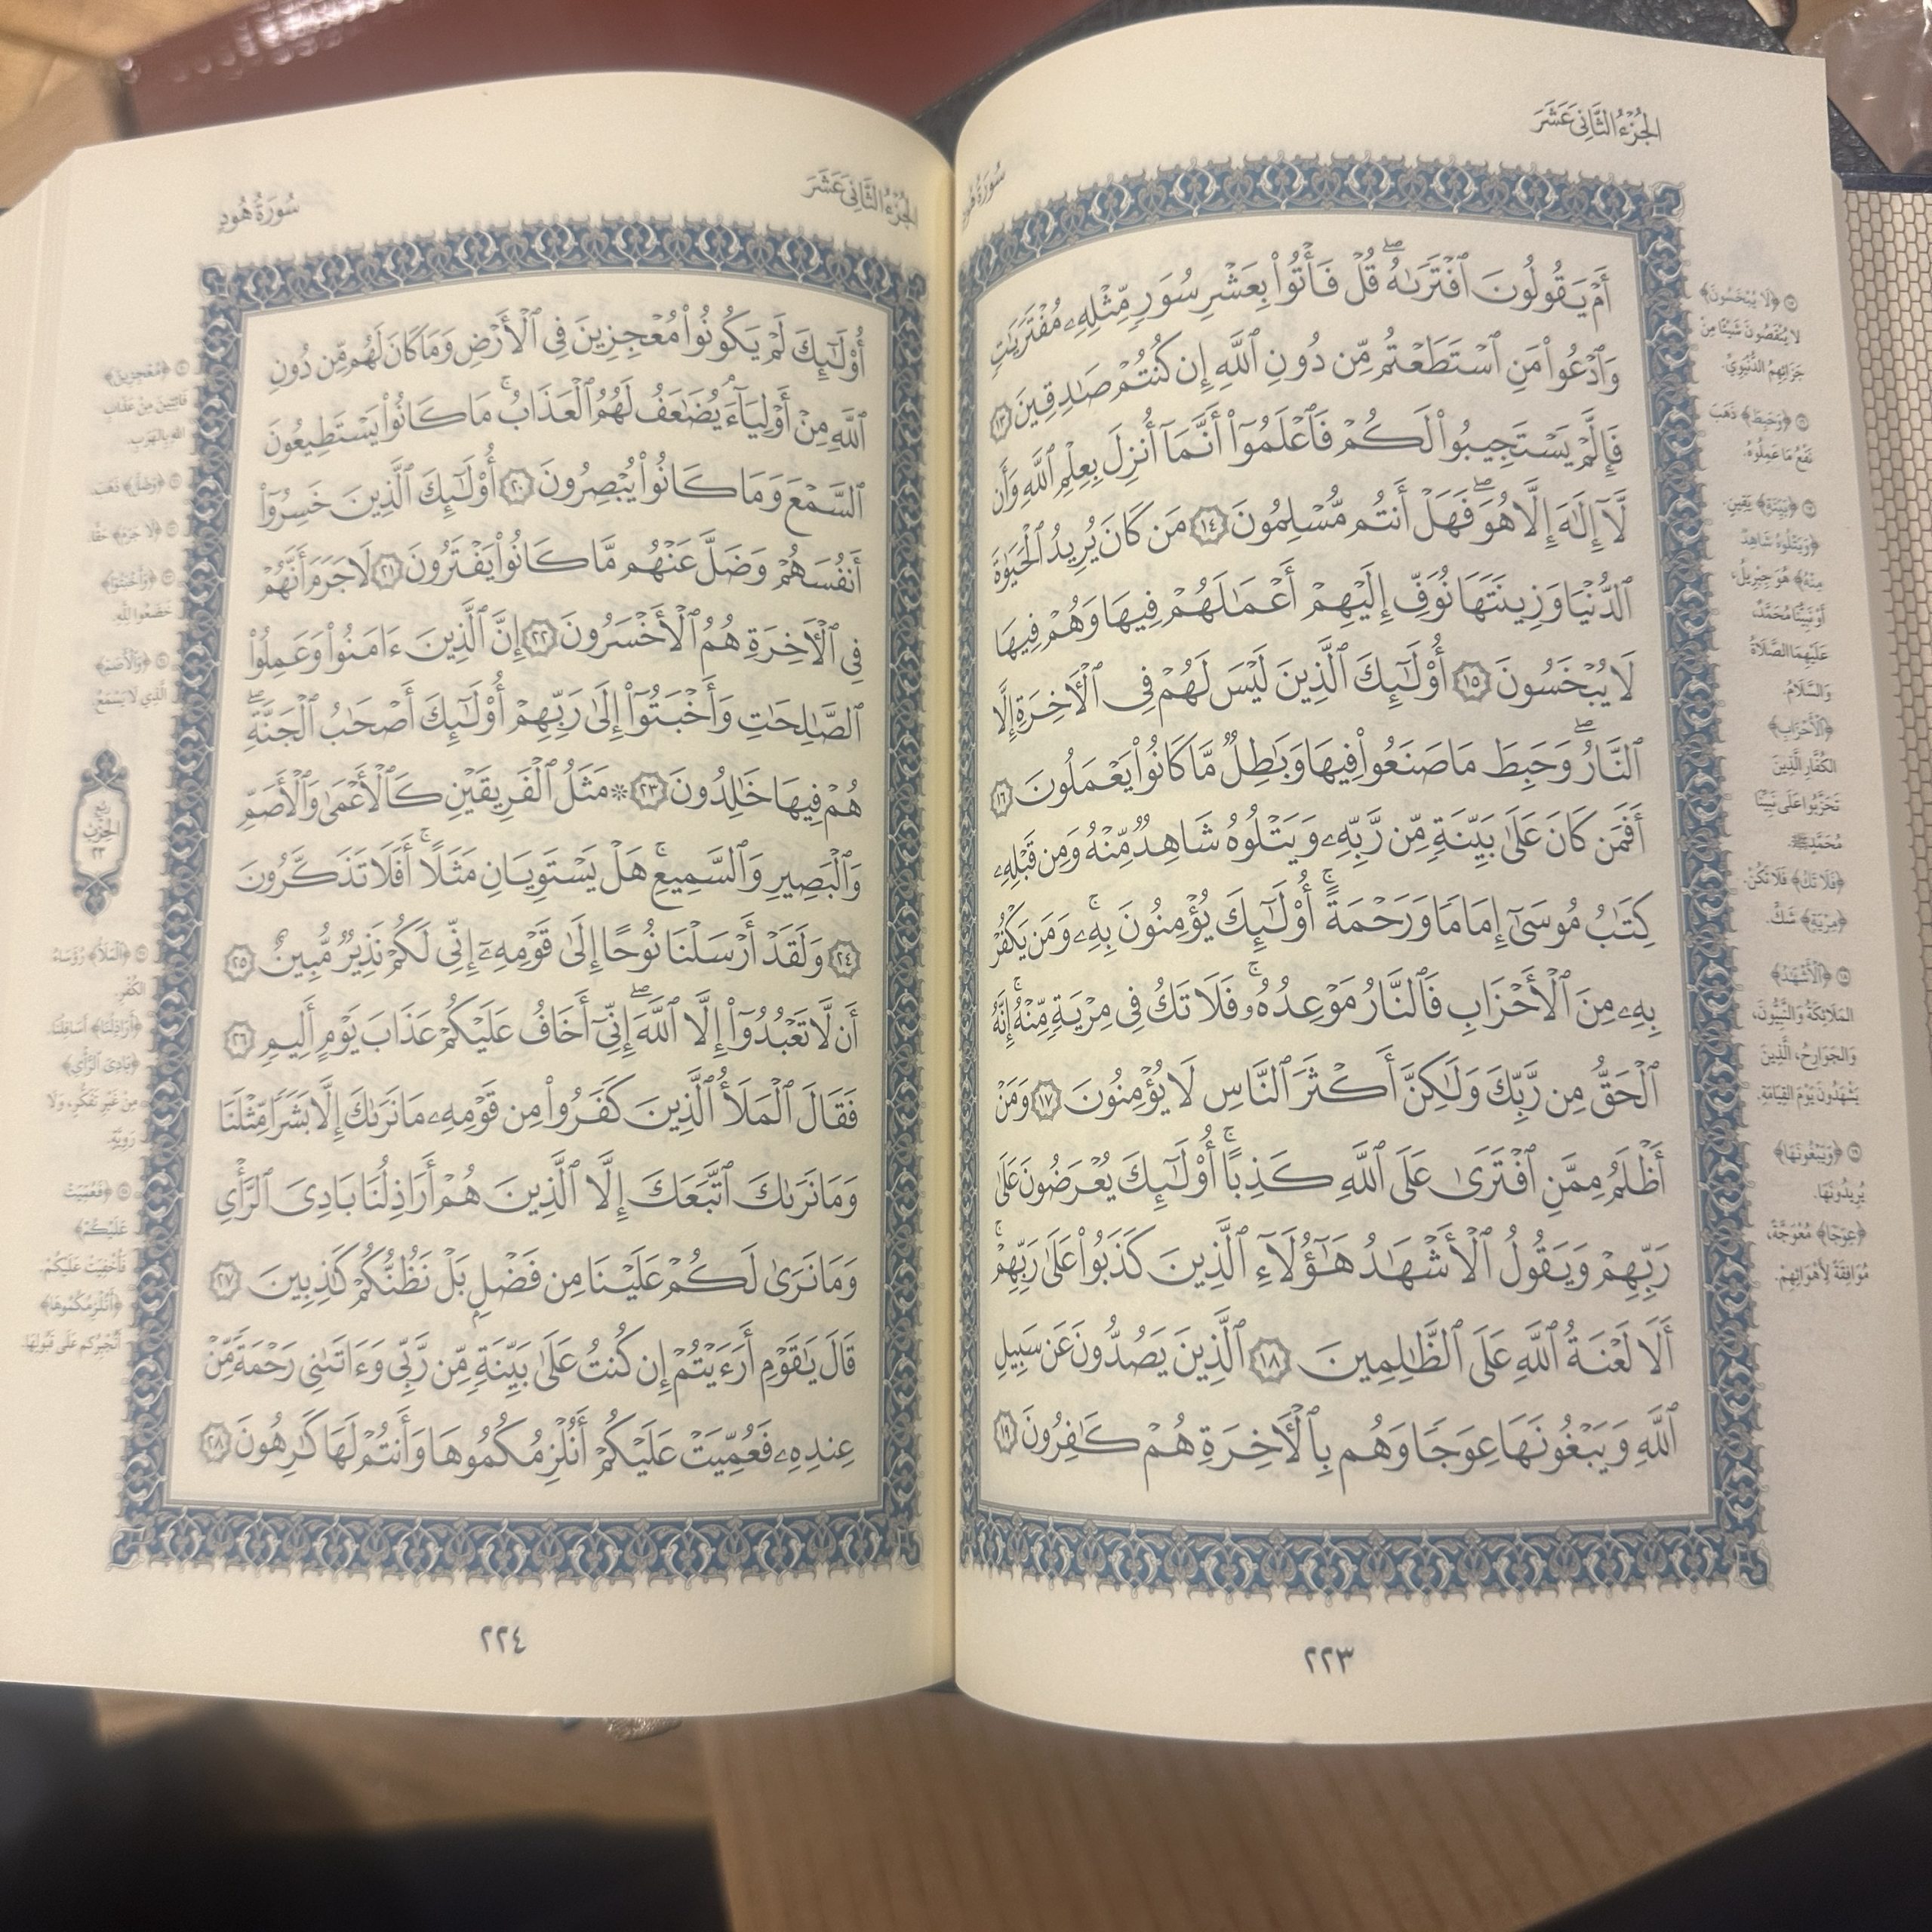 الجُزْءُ الثَّانِي عَشَرَ
سُورَةُ هُودٍ
أَمْ يَقُولُونَ ٱفْتَرَىٰهُۖ قُلْ فَأْتُوا۟ بِعَشْرِ سُوَرٍ مِّثْلِهِۦ مُفْتَرَيَٰتٍ
وَٱدْعُوا۟ مَنِ ٱسْتَطَعْتُم مِّن دُونِ ٱللَّهِ إِن كُنتُمْ صَٰدِقِينَ ١٣
فَإِلَّمْ يَسْتَجِيبُوا۟ لَكُمْ فَٱعْلَمُوٓا۟ أَنَّمَآ أُنزِلَ بِعِلْمِ ٱللَّهِ وَأَن
لَّآ إِلَٰهَ إِلَّا هُوَۖ فَهَلْ أَنتُم مُّسْلِمُونَ ١٤ مَن كَانَ يُرِيدُ ٱلْحَيَوٰةَ
ٱلدُّنْيَا وَزِينَتَهَا نُوَفِّ إِلَيْهِمْ أَعْمَٰلَهُمْ فِيهَا وَهُمْ فِيهَا
لَا يُبْخَسُونَ ١٥ أُو۟لَٰٓئِكَ ٱلَّذِينَ لَيْسَ لَهُمْ فِى ٱلْـَٔاخِرَةِ إِلَّا
ٱلنَّارُۖ وَحَبِطَ مَا صَنَعُوا۟ فِيهَا وَبَٰطِلٌ مَّا كَانُوا۟ يَعْمَلُونَ ١٦
أَفَمَن كَانَ عَلَىٰ بَيِّنَةٍ مِّن رَّبِّهِۦ وَيَتْلُوهُ شَاهِدٌ مِّنْهُ وَمِن قَبْلِهِۦ
كِتَٰبُ مُوسَىٰٓ إِمَامًا وَرَحْمَةًۚ أُو۟لَٰٓئِكَ يُؤْمِنُونَ بِهِۦۚ وَمَن يَكْفُرْ
بِهِۦ مِنَ ٱلْأَحْزَابِ فَٱلنَّارُ مَوْعِدُهُۥۚ فَلَا تَكُ فِى مِرْيَةٍ مِّنْهُۚ إِنَّهُ
ٱلْحَقُّ مِن رَّبِّكَ وَلَٰكِنَّ أَكْثَرَ ٱلنَّاسِ لَا يُؤْمِنُونَ ١٧ وَمَنْ
أَظْلَمُ مِمَّنِ ٱفْتَرَىٰ عَلَى ٱللَّهِ كَذِبًاۚ أُو۟لَٰٓئِكَ يُعْرَضُونَ عَلَىٰ
رَبِّهِمْ وَيَقُولُ ٱلْأَشْهَٰدُ هَٰٓؤُلَآءِ ٱلَّذِينَ كَذَبُوا۟ عَلَىٰ رَبِّهِمْۚ
أَلَا لَعْنَةُ ٱللَّهِ عَلَى ٱلظَّٰلِمِينَ ١٨ ٱلَّذِينَ يَصُدُّونَ عَن سَبِيلِ
ٱللَّهِ وَيَبْغُونَهَا عِوَجًا وَهُم بِٱلْـَٔاخِرَةِ هُمْ كَٰفِرُونَ ١٩
﴿لَا يُبْخَسُونَ﴾
لا يُنْقَصُونَ شَيْئًا مِنْ
جَزَائِهِمُ الدُّنْيَوِيِّ.
﴿وَحَبِطَ﴾ ذَهَبَ
نَفْعُ مَا عَمِلُوهُ.
﴿بَيِّنَةٍ﴾ يَقِينٍ.
﴿وَيَتْلُوهُ شَاهِدٌ
مِنْهُ﴾ هُوَ جِبْرِيلُ،
أَوْ نَبِيُّنَا مُحَمَّدٌ،
عَلَيْهِمَا الصَّلَاةُ
وَالسَّلَامُ.
﴿الْأَحْزَابِ﴾
الكُفَّارِ الَّذِينَ
تَحَزَّبُوا عَلَى نَبِيِّنَا
مُحَمَّدٍ ﷺ.
﴿فَلَا تَكُ﴾ فَلَا تَكُنْ.
﴿مِرْيَةٍ﴾ شَكٍّ.
﴿الْأَشْهَٰدُ﴾
المَلَائِكَةُ وَالنَّبِيُّونَ،
وَالجَوَارِحُ، الَّذِينَ
يَشْهَدُونَ يَوْمَ القِيَامَةِ.
﴿وَيَبْغُونَهَا﴾
يُرِيدُونَهَا.
﴿عِوَجًا﴾ مُعْوَجَّةً،
مُوَافِقَةً لِأَهْوَائِهِمْ.
٢٢٣
الجُزْءُ الثَّانِي عَشَرَ
سُورَةُ هُودٍ
أُو۟لَٰٓئِكَ لَمْ يَكُونُوا۟ مُعْجِزِينَ فِى ٱلْأَرْضِ وَمَا كَانَ لَهُم مِّن دُونِ
ٱللَّهِ مِنْ أَوْلِيَآءَۘ يُضَٰعَفُ لَهُمُ ٱلْعَذَابُۚ مَا كَانُوا۟ يَسْتَطِيعُونَ
ٱلسَّمْعَ وَمَا كَانُوا۟ يُبْصِرُونَ ٢٠ أُو۟لَٰٓئِكَ ٱلَّذِينَ خَسِرُوٓا۟
أَنفُسَهُمْ وَضَلَّ عَنْهُم مَّا كَانُوا۟ يَفْتَرُونَ ٢١ لَا جَرَمَ أَنَّهُمْ
فِى ٱلْـَٔاخِرَةِ هُمُ ٱلْأَخْسَرُونَ ٢٢ إِنَّ ٱلَّذِينَ ءَامَنُوا۟ وَعَمِلُوا۟
ٱلصَّٰلِحَٰتِ وَأَخْبَتُوٓا۟ إِلَىٰ رَبِّهِمْ أُو۟لَٰٓئِكَ أَصْحَٰبُ ٱلْجَنَّةِۖ
هُمْ فِيهَا خَٰلِدُونَ ٢٣ ۞ مَثَلُ ٱلْفَرِيقَيْنِ كَٱلْأَعْمَىٰ وَٱلْأَصَمِّ
وَٱلْبَصِيرِ وَٱلسَّمِيعِۚ هَلْ يَسْتَوِيَانِ مَثَلًاۚ أَفَلَا تَذَكَّرُونَ
٢٤ وَلَقَدْ أَرْسَلْنَا نُوحًا إِلَىٰ قَوْمِهِۦٓ إِنِّى لَكُمْ نَذِيرٌ مُّبِينٌ ٢٥
أَن لَّا تَعْبُدُوٓا۟ إِلَّا ٱللَّهَۖ إِنِّىٓ أَخَافُ عَلَيْكُمْ عَذَابَ يَوْمٍ أَلِيمٍ ٢٦
فَقَالَ ٱلْمَلَأُ ٱلَّذِينَ كَفَرُوا۟ مِن قَوْمِهِۦ مَا نَرَىٰكَ إِلَّا بَشَرًا مِّثْلَنَا
وَمَا نَرَىٰكَ ٱتَّبَعَكَ إِلَّا ٱلَّذِينَ هُمْ أَرَاذِلُنَا بَادِىَ ٱلرَّأْىِ
وَمَا نَرَىٰ لَكُمْ عَلَيْنَا مِن فَضْلٍۭ بَلْ نَظُنُّكُمْ كَٰذِبِينَ ٢٧
قَالَ يَٰقَوْمِ أَرَءَيْتُمْ إِن كُنتُ عَلَىٰ بَيِّنَةٍ مِّن رَّبِّى وَءَاتَىٰنِى رَحْمَةً مِّنْ
عِندِهِۦ فَعُمِّيَتْ عَلَيْكُمْ أَنُلْزِمُكُمُوهَا وَأَنتُمْ لَهَا كَٰرِهُونَ ٢٨
﴿مُعْجِزِينَ﴾
فَائِتِينَ مِنْ عَذَابِ
اللهِ بِالهَرَبِ.
﴿وَضَلَّ﴾ ذَهَبَ.
﴿لَا جَرَمَ﴾ حَقًّا.
﴿وَأَخْبَتُوا﴾
خَضَعُوا لِلهِ.
﴿وَالْأَصَمِّ﴾
الَّذِي لَا يَسْمَعُ.
رُبْعُ
الحِزْبِ
٢٣
﴿الْمَلَأُ﴾ رُؤَسَاءُ
الكُفْرِ.
﴿أَرَاذِلُنَا﴾ أَسَافِلُنَا.
﴿بَادِيَ الرَّأْيِ﴾
مِنْ غَيْرِ تَفَكُّرٍ، وَلَا
رَوِيَّةٍ.
﴿فَعُمِّيَتْ
عَلَيْكُمْ﴾
فَأُخْفِيَتْ عَلَيْكُمْ.
﴿أَنُلْزِمُكُمُوهَا﴾
أَنُجْبِرُكُمْ عَلَى قَبُولِهَا.
٢٢٤